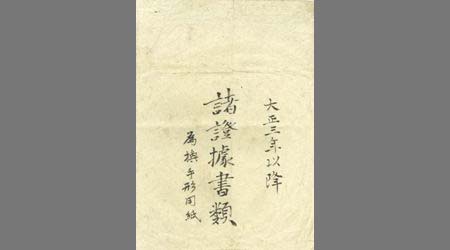 大正三年以降
諸證據書類
為換手形用紙